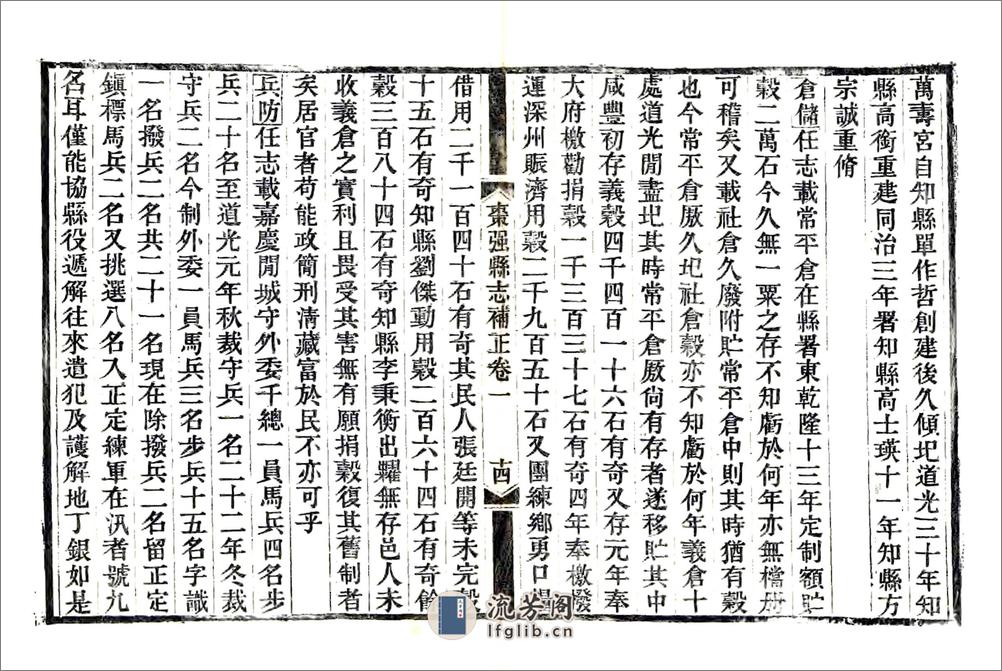 萬壽宮自知縣單作哲創建後久傾圮道光三十年知
縣高衡重建同治三年署知縣高士瑛十一年知縣方
宗誠重脩
倉儲任志載常平倉在縣署東乾隆十三年定制額貯
穀二萬石今久無一粟之存不知虧於何年亦無檔册
可稽矣又載社倉久廢附貯常平倉中則其時猶有穀
也今常平倉厫久圮社倉穀亦不知虧於何年義倉十
處道光閒盡圮其時常平倉厫尙有存者遂移貯其中
咸豐初存義穀四千四百一十六石有奇又存元年奉
大府檄勸捐穀一千三百三十七石有奇四年奉檄撥
運深州賑濟用穀二千九百五十石又團練鄉勇口糧
棗强縣志補正卷一 十四
借用二千一百四十石有奇其民人張廷開等未完穀
十五石有奇知縣劉傑動用穀二百六十四石有奇餘
穀三百八十四石有奇知縣李秉衡出糶無存邑人未
收義倉之實利且畏受其害無有願捐穀復其舊制者
矣居官者苟能政簡刑淸藏富於民不亦可乎
兵防任志載嘉慶閒城守外委千總一員馬兵四名步
兵二十名至道光元年秋裁守兵一名二十二年冬裁
守兵二名今制外委一員馬兵三名步兵十五名字識
一名撥兵二名共二十一名現在除撥兵二名留正定
鎭標馬兵二名又挑選八名入正定練軍在汛者號九
名耳僅能協縣役遞解往來遣犯及護解地丁銀如是
流芳閣
lfglib.cn